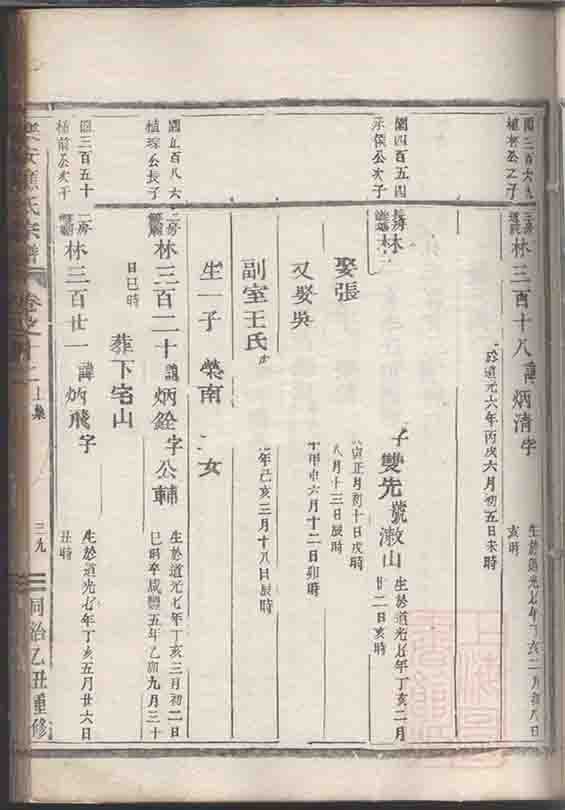 閏三百六九
植 公之子
三房
林三百十八 諱炳清字
生於道光七年丁亥二月初八日
亥時
於道光六年丙戌六月初五日未時
閏四百五四
承俊公次子
長房
林
字雙先號漱山
生於道光七年丁亥二月
廿二日亥時
娶張
寅正月初十日戌時
八月十三日辰時
又娶吳
甲申六月十二日卯時
副室王氏
年己亥三月十八日辰時
生一子 榮南 女
百八六
植琮公長子
二房
林三百二十 諱炳銓字公輔
生於道光七年丁亥三月初二日
巳時卒咸豐五年乙卯九月三十
日巳時
葬下宅山
閏三百五十
植前公次子
二房
林三百廿一 諱炳飛字
生於道光七年丁亥五月廿六日
丑時
氏宗譜
卷之
上集
三九
同治乙丑重修
上海